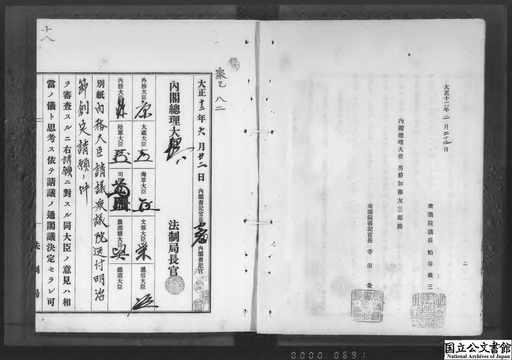 大正十二年二月二十三日
衆議院議長 粕谷義三
内閣總理大臣 男爵 加藤友三郎殿
衆議院書記官長 寺田榮
二
衆乙 八二
大正十二年六月廿二日
内閣書記官長
内閣書記官
内閣總理大臣
法制局長官
外務大臣
大藏大臣
海軍大臣
文部大臣
遞信大臣
内務大臣
陸軍大臣
司法大臣
農商務大臣
鐵道大臣
別紙内務大臣請議衆議院送付明治
節創定請願ノ件
ヲ審査スルニ右請願ニ對スル同大臣ノ意見ハ相
當ノ儀ト思考ス依テ請議ノ通閣議決定セラレ可
法制局
十八
0000 0691
国立公文書館
National Archives of Japan